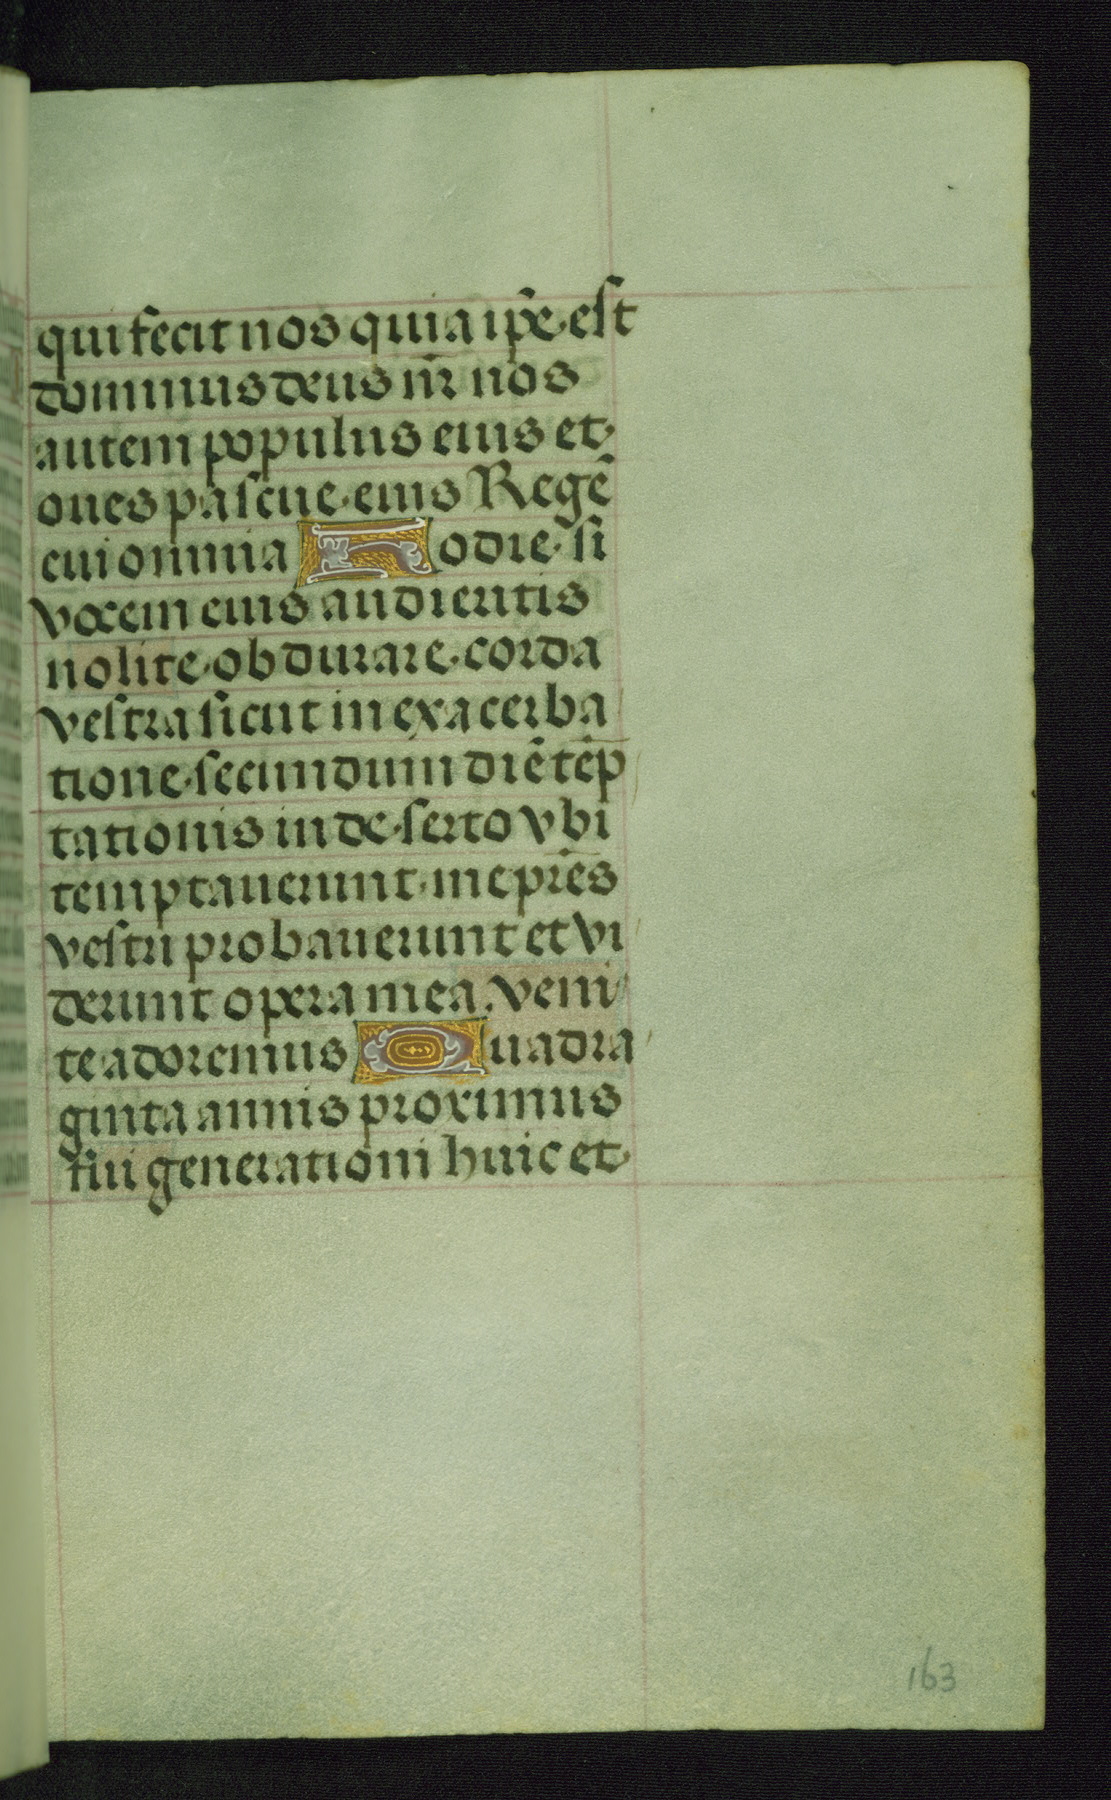 qui fecit nos quia ip̃e est
dominus deus nr̃ nos
autem populus eius et
oues pascue eius Regẽ
cui omnia Hodie si
vocem eius audieritis
nolite obdurare corda
vestra sicut in exacerba
tione secundum diẽ tẽp
tationis in deserto vbi
temptauerunt me pr̃es
vestri probauerunt et vi
derunt opera mea. veni
te adoremus Quadra
ginta annis proximus
fui generationi huic et
163